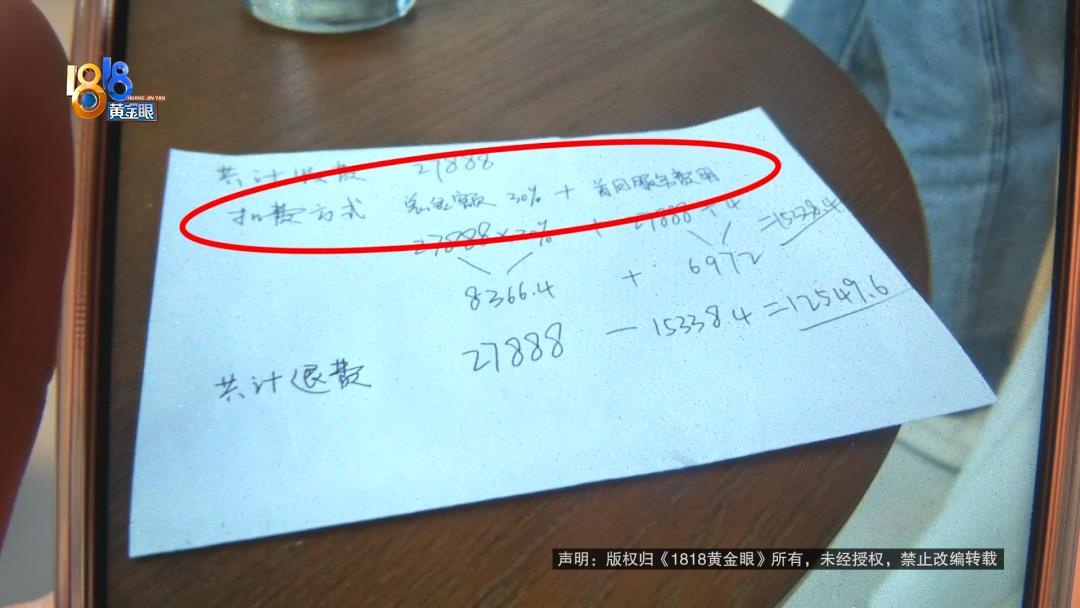 1818
HUANG JIN YAN
黄金眼
共计收费 27888
扣费方式 总金额 30% + 首月服务费用
27888×30% + 27888÷4 =15338.4
8366.4 + 6972
共计退费 27888 — 15338.4 =12549.6
声明：版权归《1818黄金眼》所有，未经授权，禁止改编转载